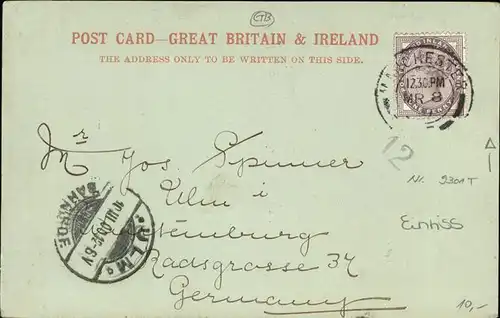 CTB
POST CARD—GREAT BRITAIN & IRELAND
THE ADDRESS ONLY TO BE WRITTEN ON THIS SIDE.
MANCHESTER
12.30.PM
MR 8
12
Mr Jos Spinner
Ulm i
Radsgrosse 34
Germany
ULM
BAHNHOF
Nr.
10,-